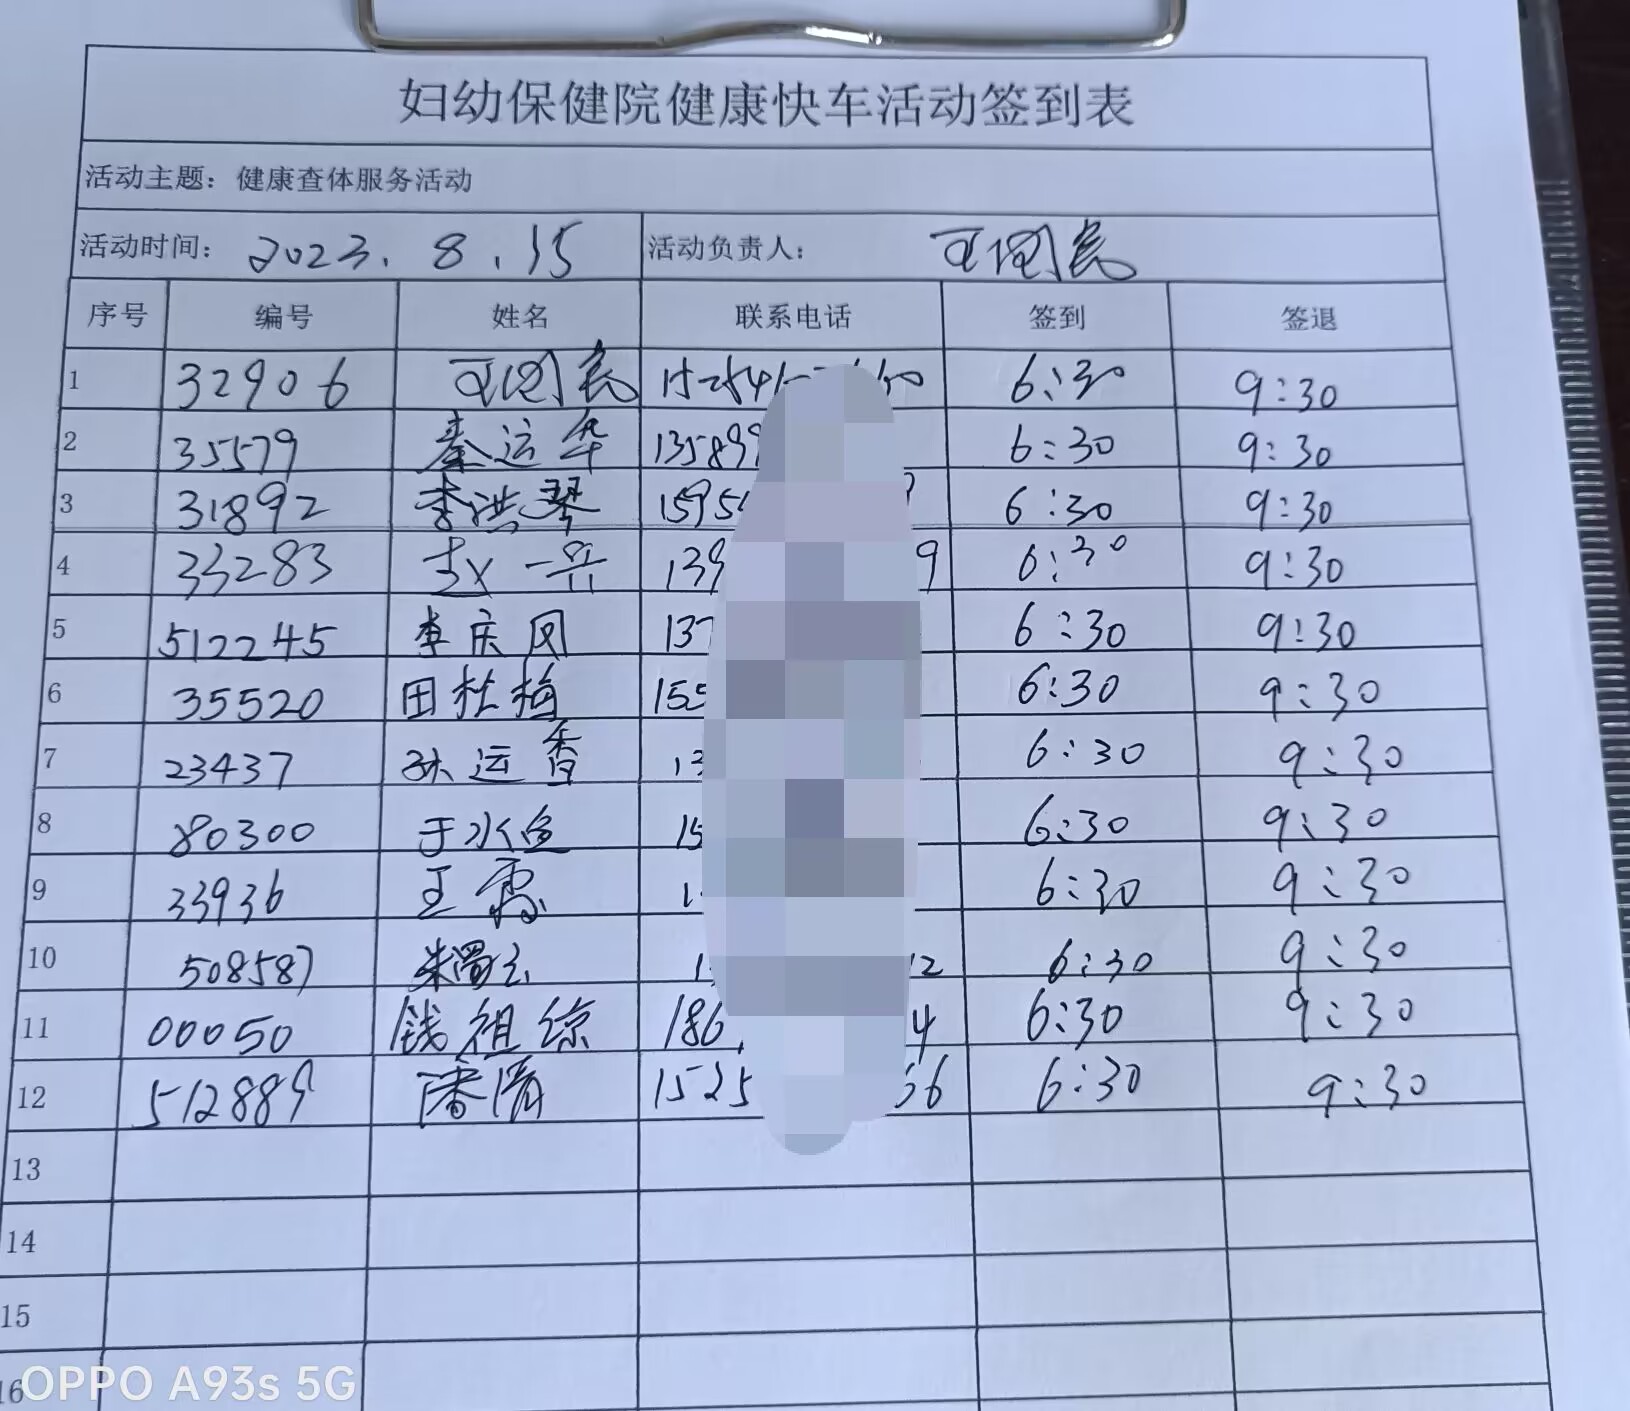 妇幼保健院健康快车活动签到表
活动主题：健康查体服务活动
活动时间： 2023.8.15 活动负责人： 王国民
序号 编号 姓名 联系电话 签到 签退
1 32906 王国民 6:30 9:30
2 35579 秦运华 135899 6:30 9:30
3 31892 李洪琴 1595 6:30 9:30
4 33283 赵一 139 9 6:30 9:30
5 512245 李庆风 137 6:30 9:30
6 35520 田桂梅 155 6:30 9:30
7 23437 孙运香 13 6:30 9:30
8 80300 于水鱼 15 6:30 9:30
9 33936 王霞 1 6:30 9:30
10 508587 朱 1 12 6:30 9:30
11 00050 钱祖综 186 4 6:30 9:30
12 512889 潘清 1525 56 6:30 9:30
13
14
15
16
OPPO A93s 5G